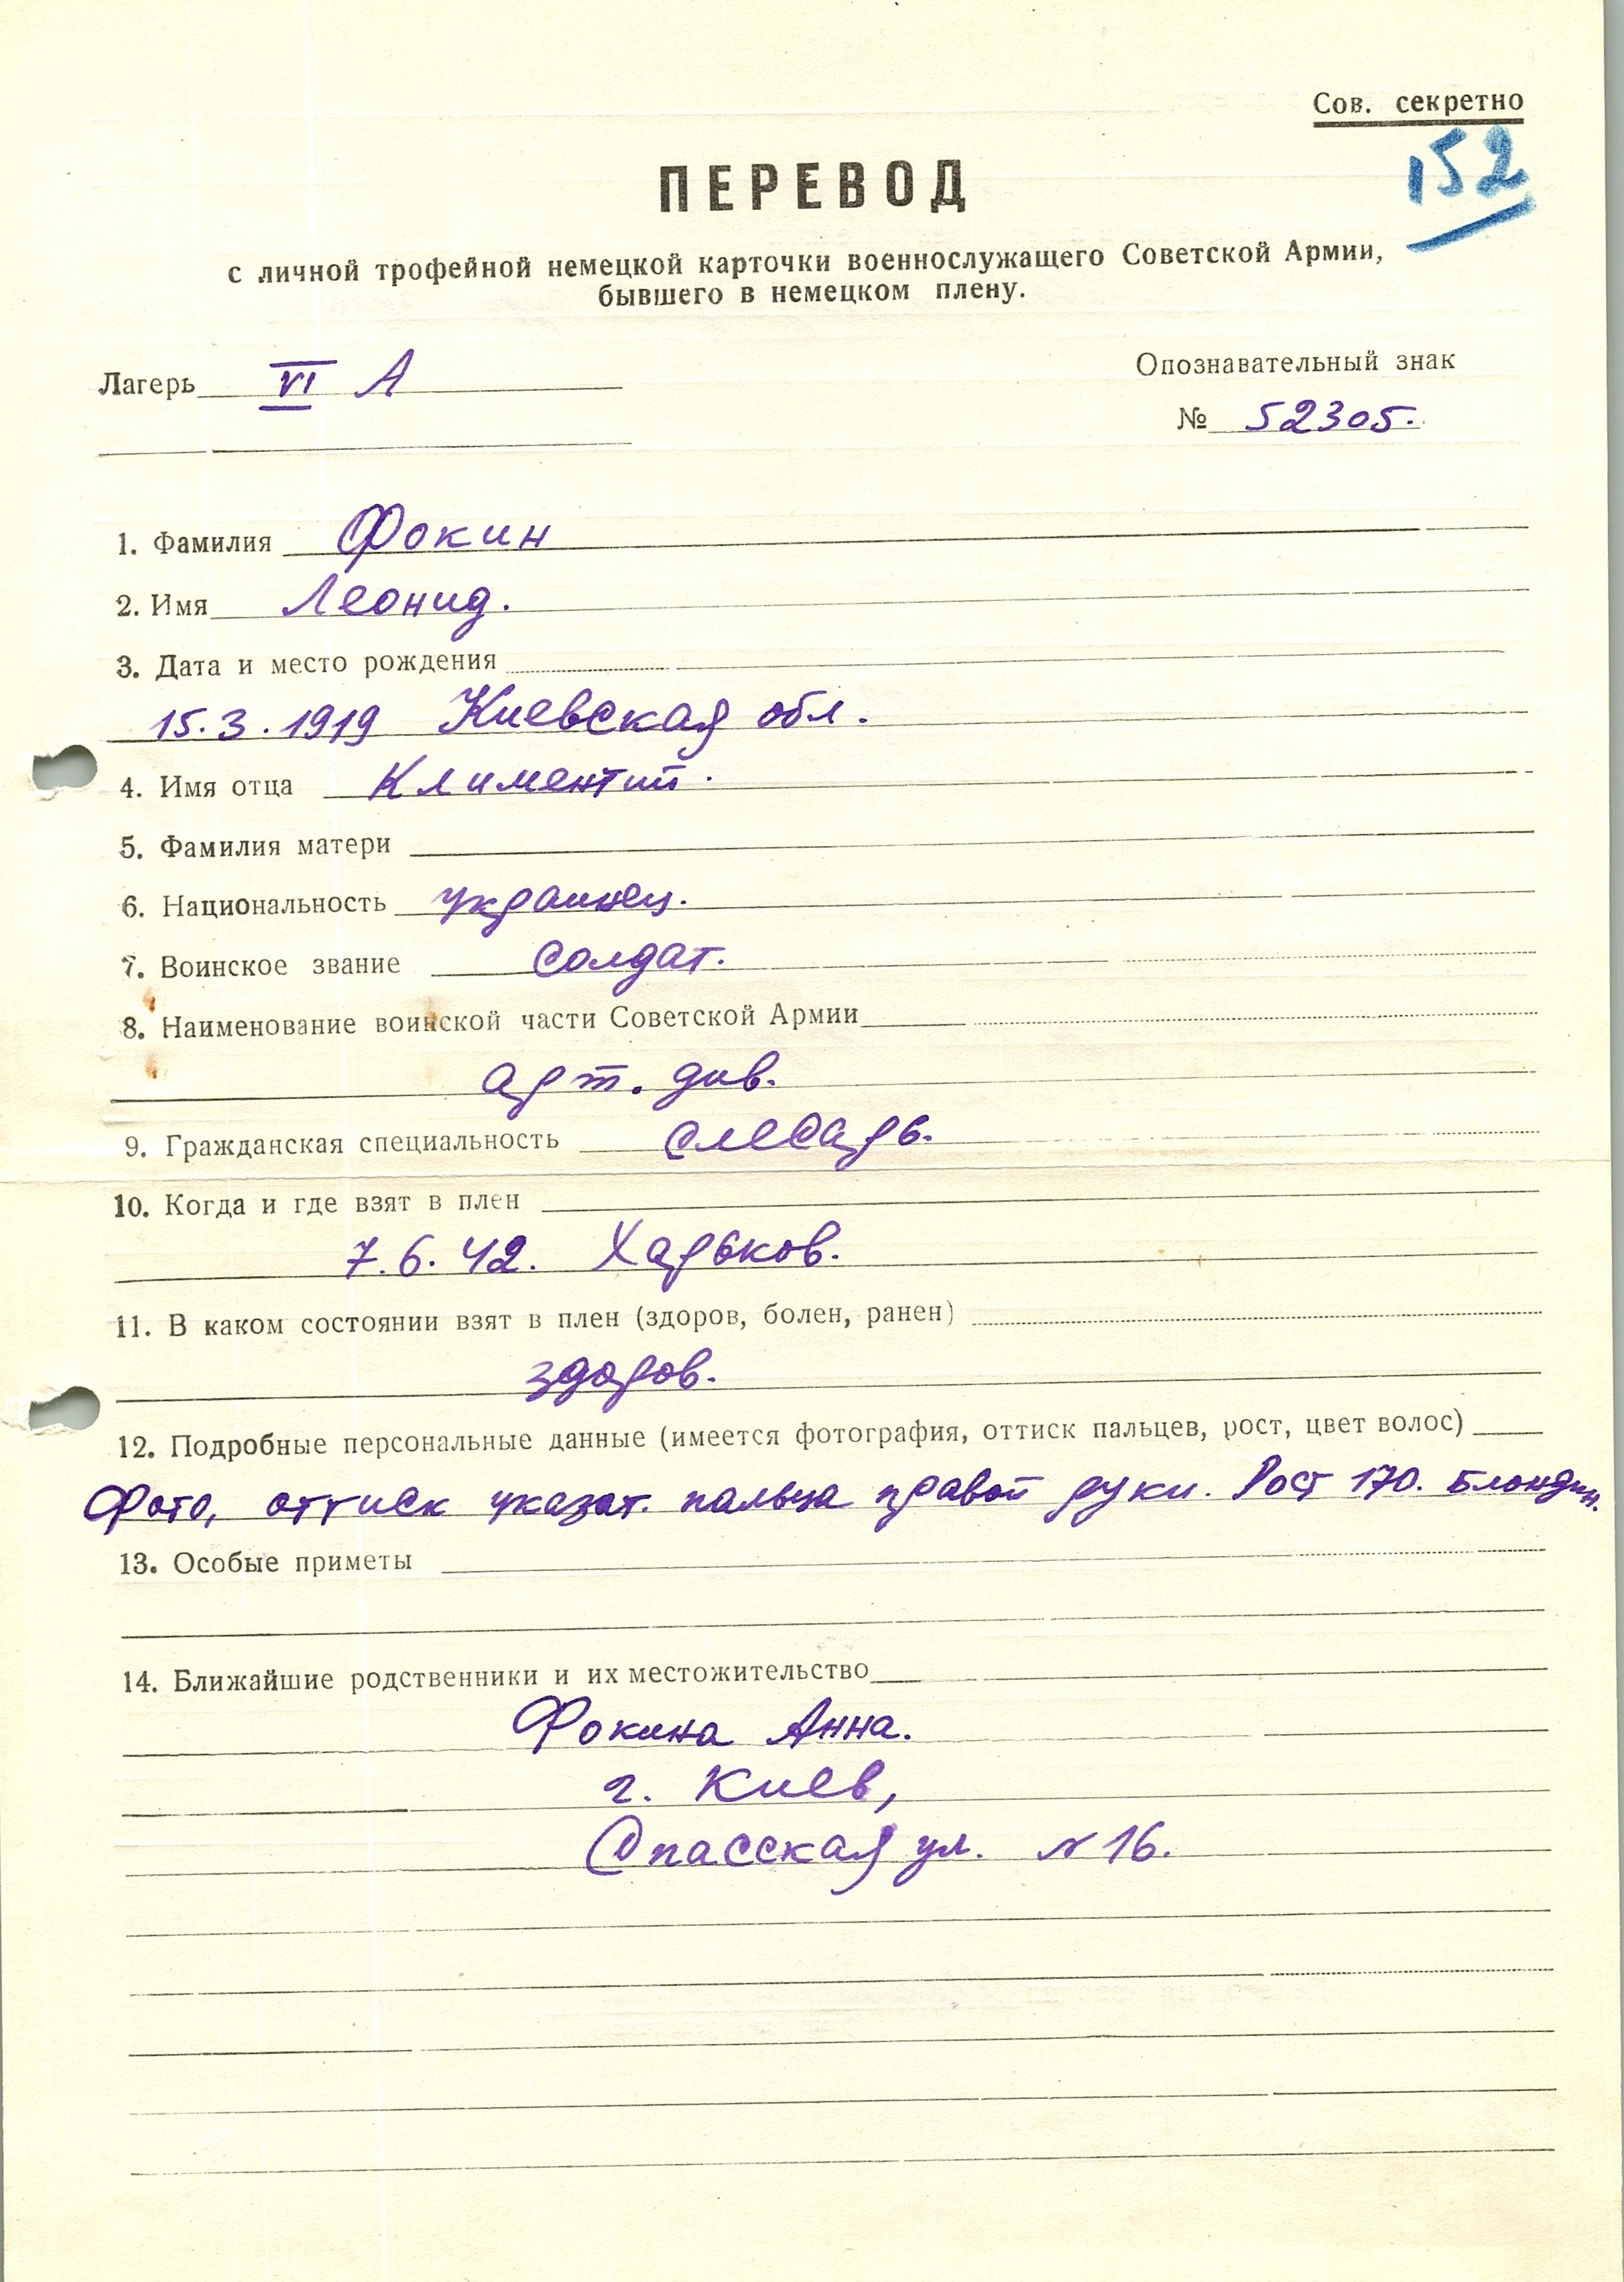 Сов. секретно
152
ПЕРЕВОД
с личной трофейной немецкой карточки военнослужащего Советской Армии,
бывшего в немецком плену.
Лагерь VI А
Опознавательный знак
№ 52305.
1. Фамилия Фокин
2. Имя Леонид.
3. Дата и место рождения
15.3.1919 Киевская обл.
4. Имя отца Климентий.
5. Фамилия матери
6. Национальность украинец.
7. Воинское звание солдат.
8. Наименование воинской части Советской Армии
арт. див.
9. Гражданская специальность слесарь.
10. Когда и где взят в плен
7.6.42. Харьков.
11. В каком состоянии взят в плен (здоров, болен, ранен)
здоров.
12. Подробные персональные данные (имеется фотография, оттиск пальцев, рост, цвет волос)
Фото, оттиск указат. пальца правой руки. Рост 170. Блондин.
13. Особые приметы
14. Ближайшие родственники и их местожительство
Фокина Анна.
г. Киев,
Спасская ул. N 16.